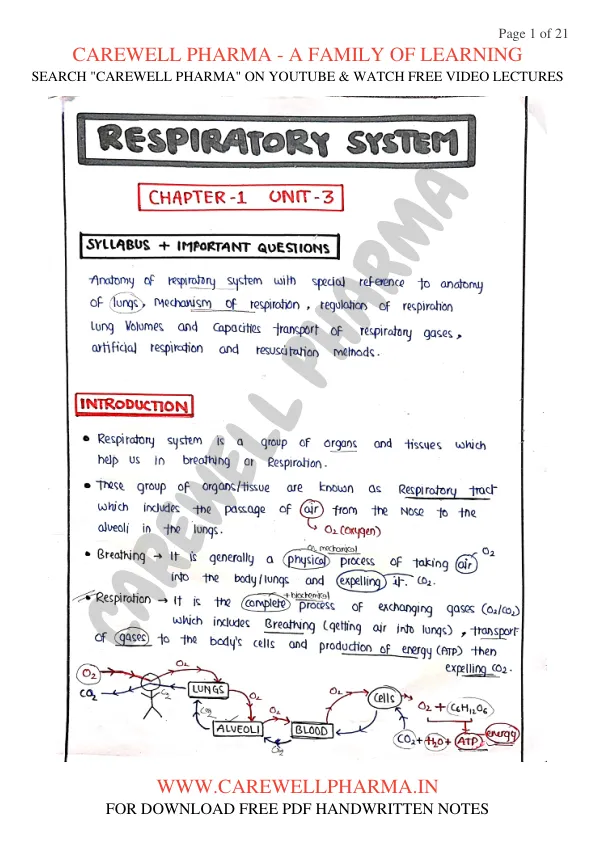 Page 1 of 21
CAREWELL PHARMA - A FAMILY OF LEARNING
SEARCH "CAREWELL PHARMA" ON YOUTUBE & WATCH FREE VIDEO LECTURES
RESPIRATORY SYSTEM
CHAPTER-1 UNIT-3
SYLLABUS + IMPORTANT QUESTIONS
Anatomy of respiratory system with special reference to anatomy
of lungs, Mechanism of respiration, regulation of respiration
Lung Volumes and Capacities transport of respiratory gases,
artificial respiration and resuscitation methods.
INTRODUCTION
• Respiratory system is a group of organs and tissues which
help us in breathing or Respiration.
• These group of organs/tissue are known as Respiratory tract
which includes the passage of air from the Nose to the
alveoli in the lungs.
O2 (oxygen)
mechanical
• Breathing → It is generally a physical process of taking air O2
into the body/lungs and expelling it. CO2.
+ biochemical
• Respiration → It is the complete process of exchanging gases (O2/CO2)
which includes Breathing (getting air into lungs), transport
of gases to the body's cells and production of energy (ATP) then
expelling CO2.
O2 O2 LUNGS O2 O2 O2 Cells O2 + C6H12O6
CO2 ALVEOLI BLOOD CO2 + H2O + ATP energy
CAREWELL PHARMA
WWW.CAREWELLPHARMA.IN
FOR DOWNLOAD FREE PDF HANDWRITTEN NOTES